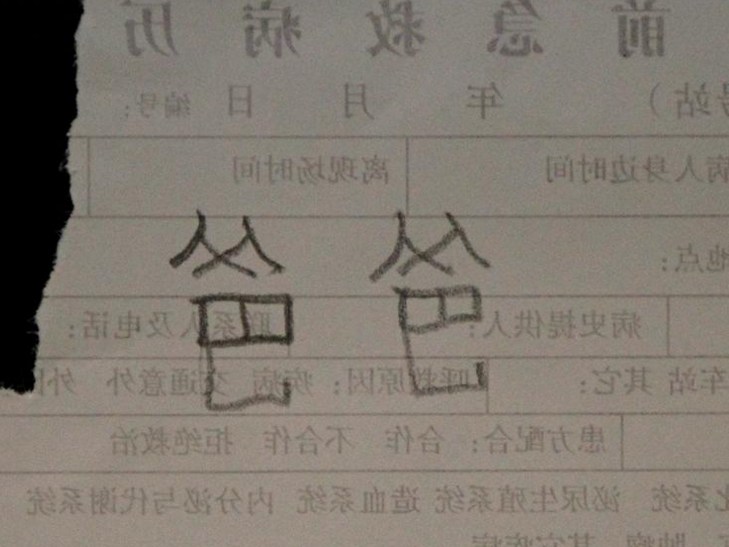 前急救病历
号站） 年 月 日 编号：
病人身边时间 离现场时间
爸爸
地点：
病史提供人： 联系人及电话：
车站 其它： 呼救原因： 疾病 交通意外
患方配合： 合作 不合作 拒绝救治
化系统 泌尿生殖系统 造血系统 内分泌与代谢系统
肿瘤 其它疾病